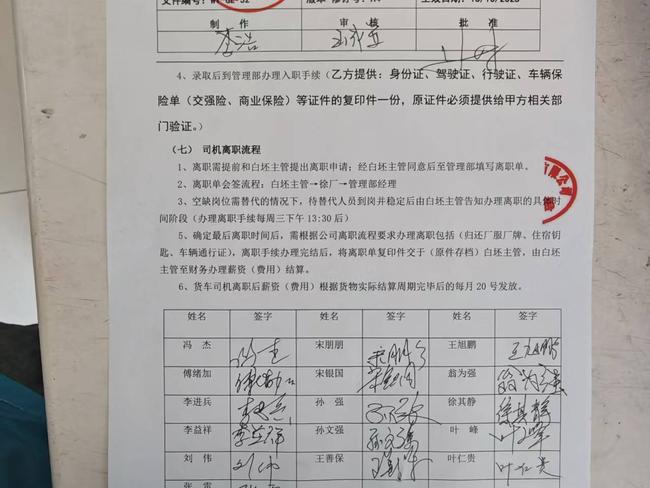 制 作
审 核
批 准
4、录取后到管理部办理入职手续（乙方提供：身份证、驾驶证、行驶证、车辆保
险单（交强险、商业保险）等证件的复印件一份，原证件必须提供给甲方相关部
门验证。）
（七） 司机离职流程
1、离职需提前和白坯主管提出离职申请；经白坯主管同意后至管理部填写离职单。
2、离职单会签流程：白坯主管→徐厂→管理部经理
3、空缺岗位需替代的情况下，待替代人员到岗并稳定后由白坯主管告知办理离职的具体时
间阶段（办理离职手续每周三下午 13:30 后）
5、确定最后离职时间后，需根据公司离职流程要求办理离职包括（归还厂服厂牌、住宿钥
匙、车辆通行证），离职手续办理完结后，将离职单复印件交于（原件存档）白坯主管，由白坯
主管至财务办理薪资（费用）结算。
6、货车司机离职后薪资（费用）根据货物实际结算周期完毕后的每月 20 号发放。
姓名 签字 姓名 签字 姓名 签字
冯 杰 宋朋朋 王旭鹏 王旭鹏
傅绪加 宋银国 翁为强 翁为强
李进兵 孙 强 徐其静 徐其静
李益祥 李益祥 孙文强 孙文强 叶 峰 叶峰
刘 伟 刘伟 王善保 叶仁贵 叶仁贵